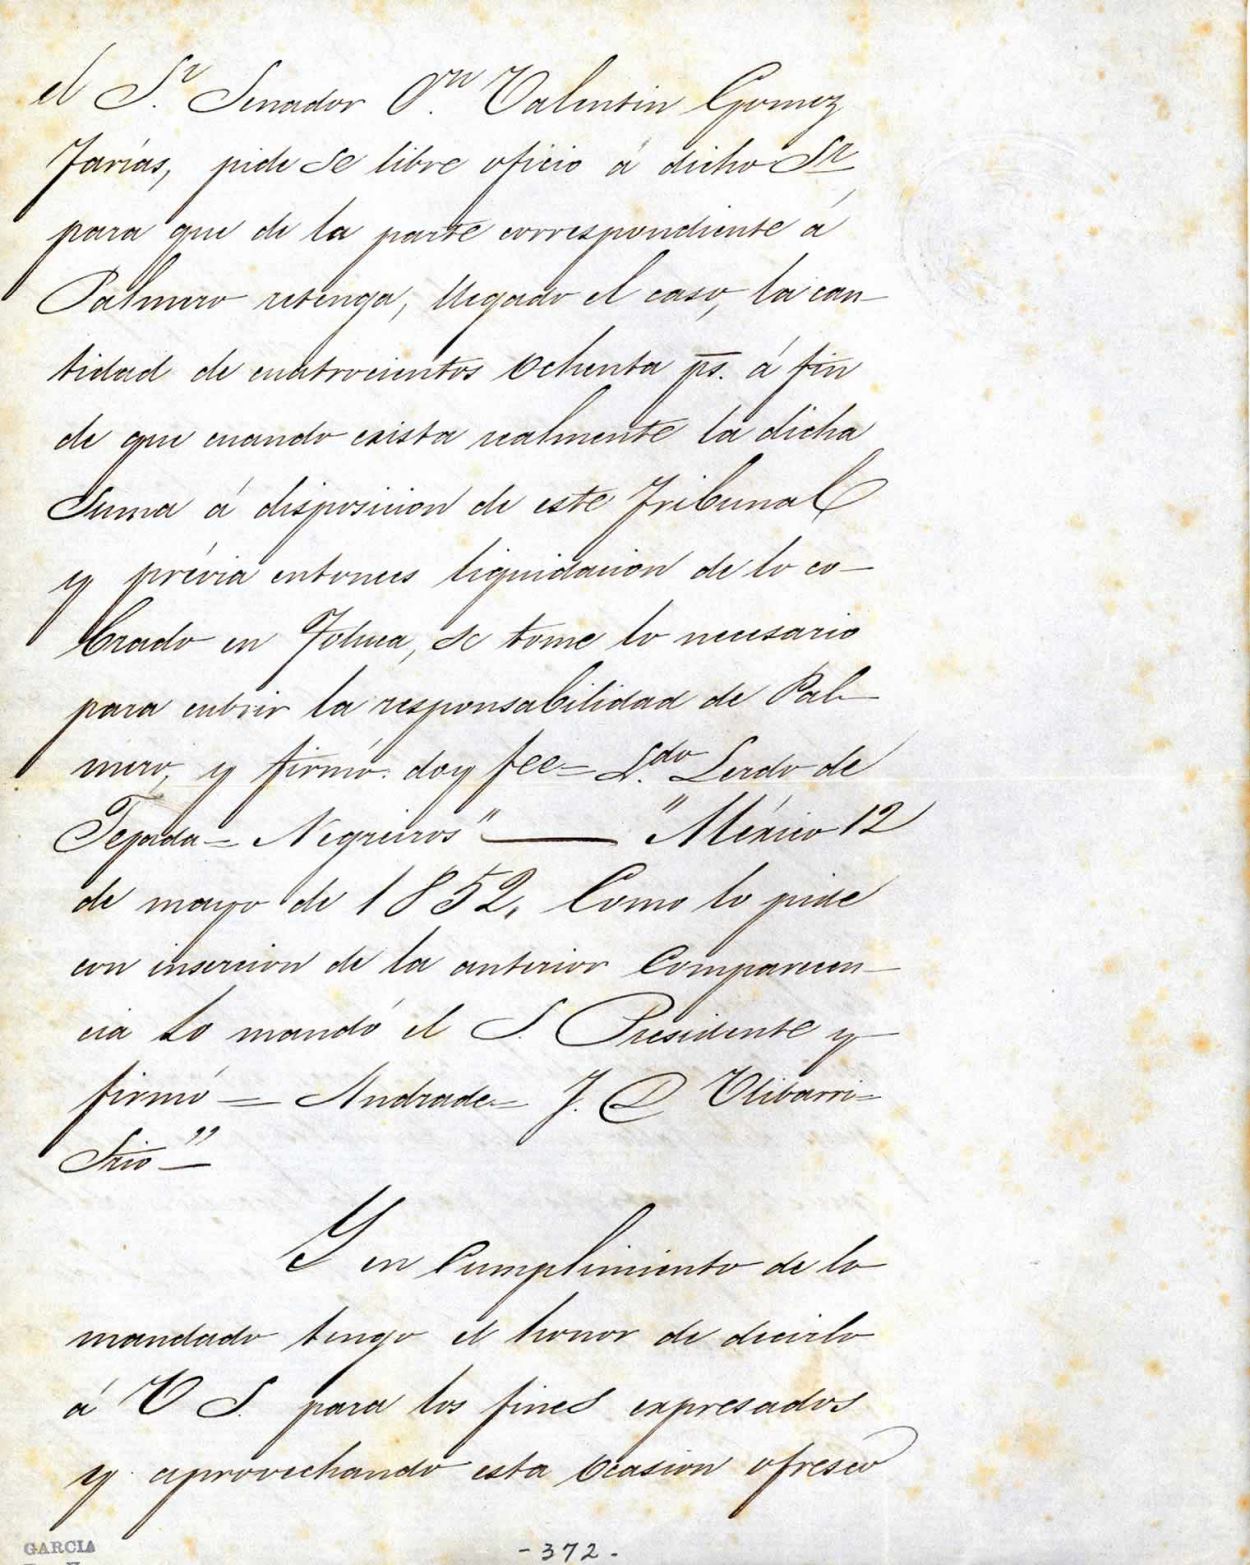 el S.r Senador D.n Valentin Gomez
Farías, pide se libre oficio á dicho Sr
para que de la parte correspondiente á
Palmero retenga, llegado el caso, la can-
tidad de cuatrocientos ochenta ps. á fin
de que cuando exista realmente la dicha
suma á disposicion de este Tribunal
y prévia entonces liquidacion de lo co-
brado en Toluca, se tome lo necesario
para cubrir la responsabilidad de Pal-
mero, y firmó. doy fee= L.do Lerdo de
Tejada= Negreiros" — "México 12
de mayo de 1852. Como lo pide
con insercion de la anterior comparecen-
cia Lo mandó el S. Presidente y
firmó = Andrade= J. Ulibarri=
Srio"—
Y en cumplimiento de lo
mandado tengo el honor de decirlo
á V S. para los fines expresados
y aprovechando esta ocasion ofresco
GARCIA
-372.